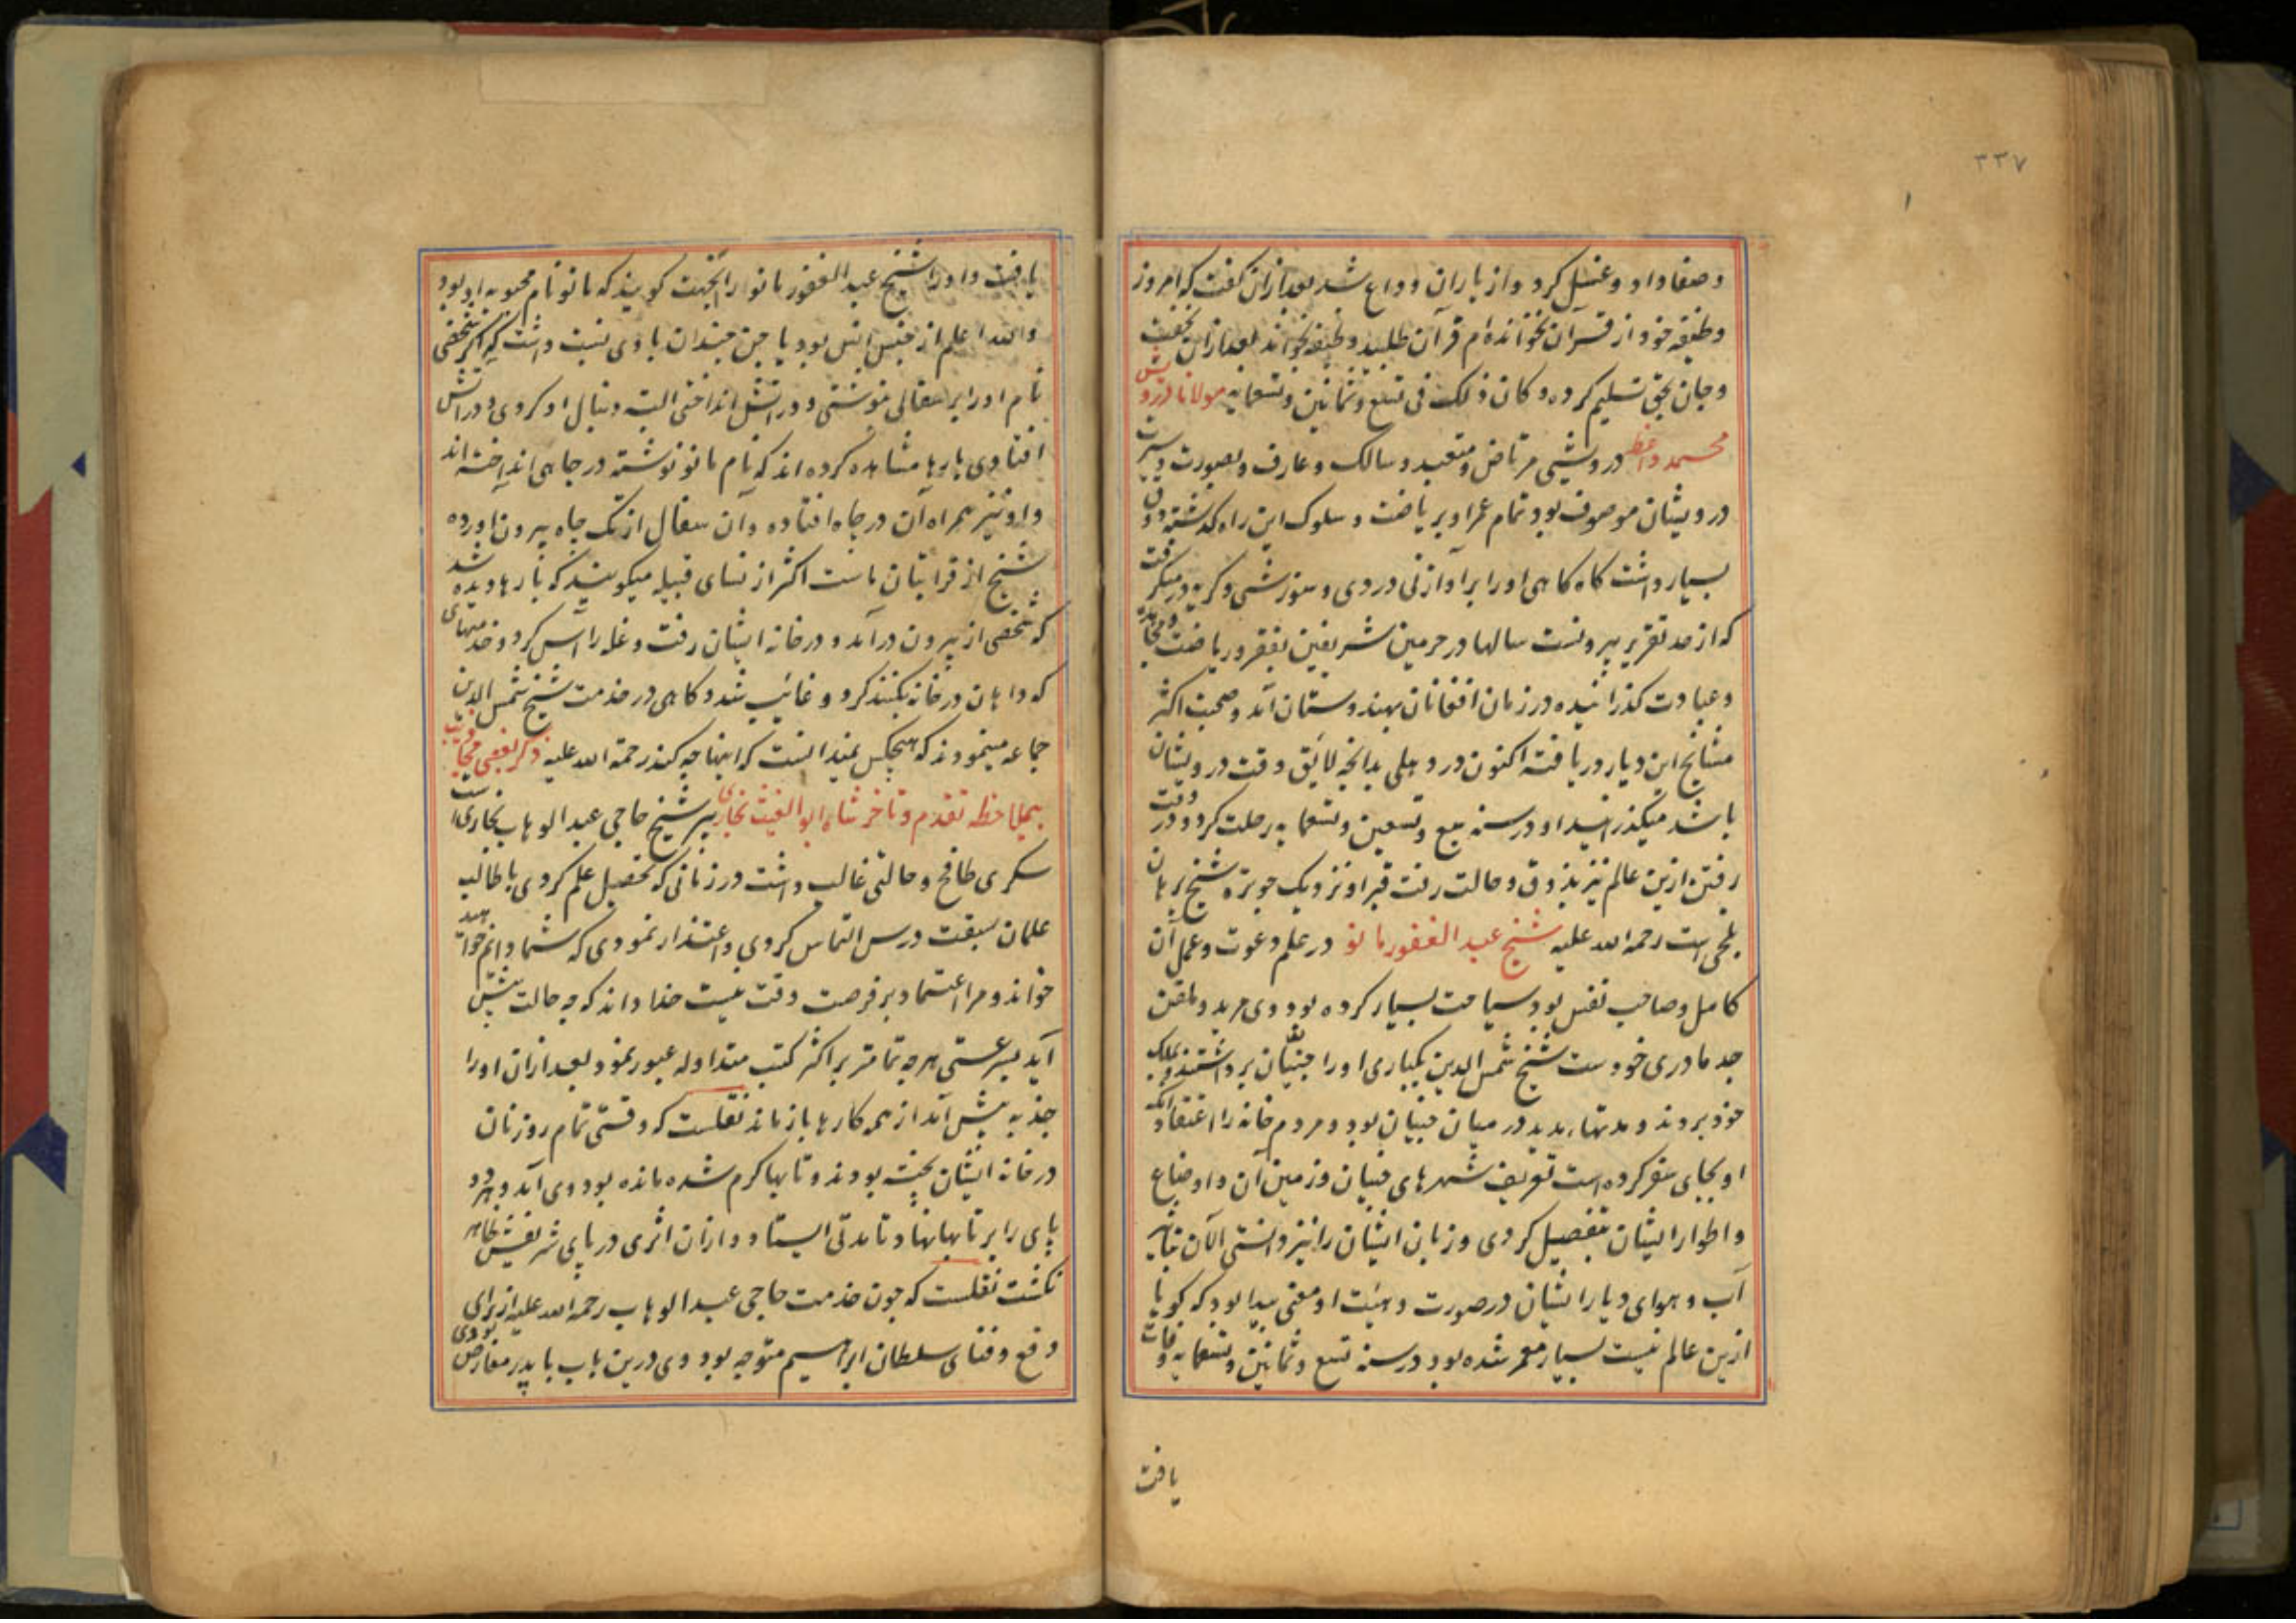 ۳۳۷
۱
وصفا داد و غسل کرد و از یاران وداع شد بعد ازان گفت که امروز
وظیفه خود از قرآن نخوانده‌ام قرآن طلبید وظیفه بخواند بعد ازان بخفت
وجان بحق تسلیم کرده وکان ذلک فی تسع وثمانین وتسعمایه مولانا درویش
محمد واعظ درویشی مرتاض و متعبد و سالک و عارف و بصورت وسیرت
درویشان موصوف بود تمام عمر او بریاضت و سلوک این راه گذشته ذوق
بسیار داشت گاه گاهی او را بر آواز نی دردی و سوزشی و گریه در میگرفت
که از حد تقریر بیرونست سالها در حرمین شریفین بفقر و ریاضت و مجاهده
وعبادت گذرانیده در زمان افغانان بهندوستان آمد و صحبت اکثر
مشایخ این دیار دریافته اکنون در دهلی بدانچه لایق وقت درویشان
باشد میگذرانید او در سنه سبع وتسعین وتسعمایه رحلت کرد و در وقت
رفتن ازین عالم نیز بذوق و حالت رفت قبر او نزدیک چوبتره شیخ برهان
بلخی است رحمه الله علیه شیخ عبد الغفور مانو در علم دعوت و عمل آن
کامل و صاحب نفس بود سیاحت بسیار کرده بود وی مرید و ملقن
جد مادری خودست شیخ شمس الدین یکباری او را جنیان برداشتند و بملک
خود بردند و مدتهاء مدید در میان جنیان بود و مردم خانه را اعتقاد آنکه
او بجای سفر کرده است تعریف شهرهای جنیان و زمین آن و اوضاع
و اطوار ایشان بتفصیل کردی و زبان ایشان را نیز دانستی الآن تاثیر
آب و هوای دیار ایشان در صورت و هیئت او معنی پیدا بود که گویا
ازین عالم نیست بسیار معمر شده بود در سنه تسع وثمانین وتسعمایه وفات
یافت
یافت و او را شیخ عبد الغفور مانو از انجهت گویند که مانو نام محبوبه او بود
والله اعلم از جنس انس بود یا جن چندان با وی نسبت داشت که اگر شخصی
نام او را بر سفالی نوشتی و در آتش انداختی البته دنبال او کردی و در آتش
افتادی بارها مشاهده کرده‌اند که نام مانو نوشته در چاهی انداخته‌اند
و او نیز همراه آن در چاه افتاده و آن سفال از تک چاه بیرون آورده
شیخ از قرابتیان ماست اکثر از نسای قبیله میگویند که بارها دیده شد
که شخصی از بیرون در آمد و در خانه ایشان رفت و غله را آس کرد و خدمتهای
که داهان در خانه بکنند کرد و غائب شد و گاهی در خدمت شیخ شمس الدین
جماعه مینمودند که هیچکس نمیدانست که اینها چه کنند رحمة الله علیه ذکر بعضی مجاذیب
بیملاحظه تقدم و تاخر شاه ابو الغیث بخاری پسر شیخ حاجی عبد الوهاب بخاری است
سکری طافح و حالتی غالب داشت در زمانی که تحصیل علم کردی با طالب
علمان سبقت درس التماس کردی و اعتذار نمودی که شما دایم خواهید
خواند و مرا اعتماد بر فرصت وقت نیست خدا داند که چه حالت پیش
آید بسرعتی هر چه تمامتر بر اکثر کتب متداوله عبور نمود بعد ازان او را
جذبه پیش آمد از همه کارها باز ماند نقلست که وقتی تمام روز نان
در خانه ایشان پخته بودند و تابها گرم شده مانده بود وی آمد و هر دو
پای را بر تابها نهاد و تا مدتی ایستاد و ازان اثری در پای شریفش ظاهر
نگشت نقلست که چون خدمت حاجی عبد الوهاب رحمه الله علیه از برای
دفع و فنای سلطان ابراهیم متوجه بود وی درین باب با پدر معارض بودی